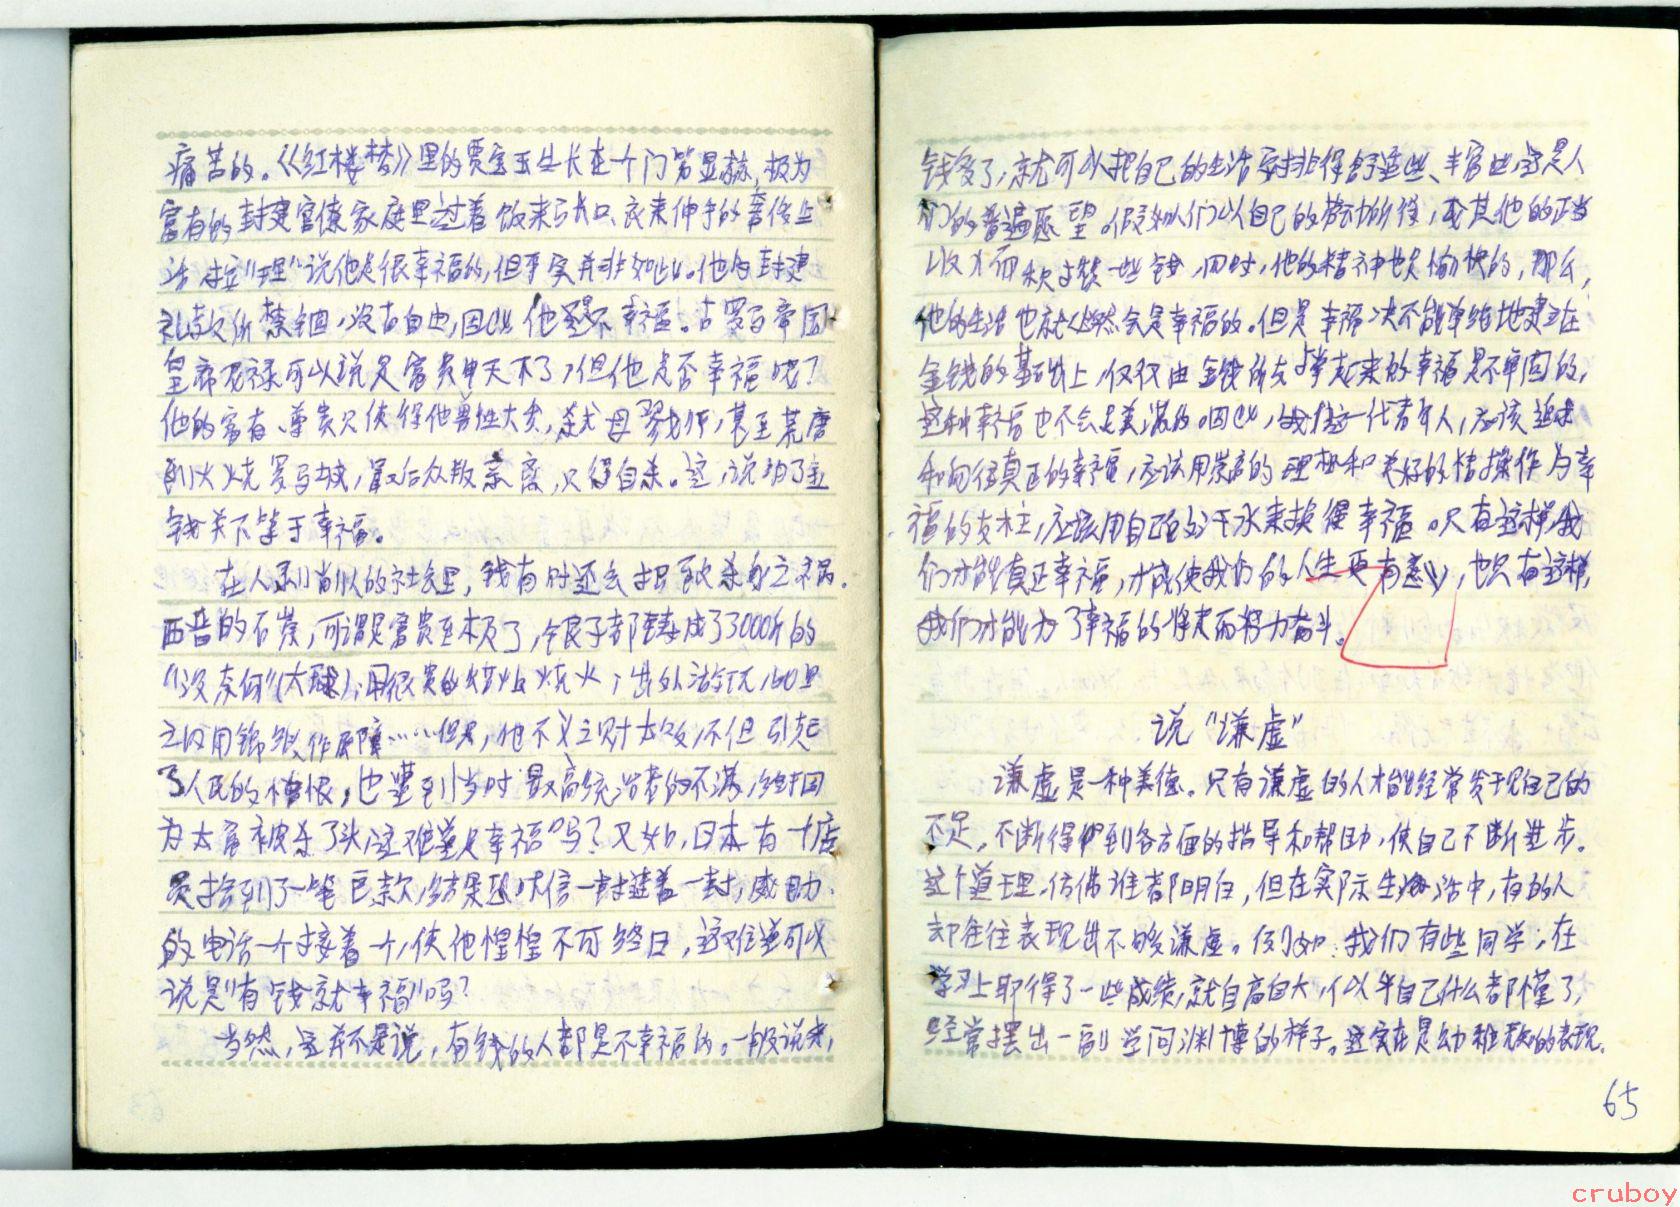 痛苦的。《红楼梦》里的贾宝玉生长在一个门第显赫,极为
富有的封建官僚家庭里,过着饭来张口、衣来伸手的奢侈生
活,按"理"说他是很幸福的,但事实并非如此。他为封建
礼教所禁锢,没有自由,因此他是不幸福。古罗马帝国
皇帝尼禄可以说是富贵甲天下了,但他是否幸福呢?
他的富有、尊贵只使得他兽性大发,杀母戮师,甚至荒唐
到火烧罗马城,最后众叛亲离,只得自杀。这,说明了金
钱并不等于幸福。
在人剥削人的社会里,钱有时还会招致杀身之祸。
西晋的石崇,可谓是富贵至极了,银子都铸成了3000斤的
"没奈何"(大球),用很贵的蜡烛烧火,出外游玩,50里
之内用锦缎作屏障……但是,他不义之财太多,不但引起
了人民的憎恨,也遭到当时最高统治者的不满,终于因
为太富被杀了头,这难道是幸福吗?又如,日本有一店
员拾到了一笔巨款,结果恐吓信一封接着一封,威胁
的电话一个接着一个,使他惶惶不可终日,这难道可以
说是"有钱就幸福"吗?
当然,这并不是说,有钱的人都是不幸福的。一般说来,
钱多了,就可以把自己的生活安排得舒适些、丰富些,这是人
们的普遍愿望。假如人们以自己的劳动所得,或其他的正当
收入而积攒一些钱,同时,他的精神也是愉快的,那么,
他的生活也就必然会是幸福的。但是幸福决不能单纯地建立在
金钱的基础上,仅仅由金钱所支撑起来的幸福是不牢固的,
这种幸福也不会是美满的。因此,我们这一代青年人,应该追求
和向往真正的幸福,应该用崇高的理想和美好的情操作为幸
福的支柱,应该用自己的汗水来换得幸福。只有这样,我
们才能真正幸福,才能使我们的人生更有意义,也只有这样,
我们才能为了幸福的将来而努力奋斗。
说"谦虚"
谦虚是一种美德。只有谦虚的人才能经常发现自己的
不足,不断得到各方面的指导和帮助,使自己不断进步。
这个道理,仿佛谁都明白,但在实际生活中,有的人
却往往表现出不够谦虚。例如:我们有些同学,在
学习上取得了一些成绩,就自高自大,以为自己什么都懂了,
经常摆出一副学问渊博的样子。这实在是幼稚无知的表现。
65
cruboy